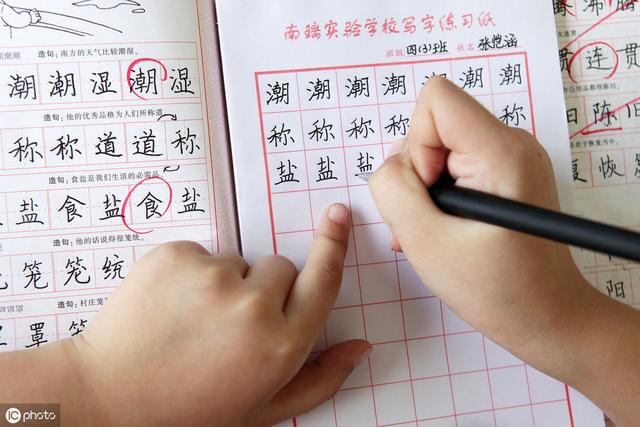 潮
造句：南方的天气比较潮湿。
潮 潮 湿 潮 湿
造句：他的优秀品格为人们所称道
称 称 道 道 称
造句：食盐是我们生活的必需品。
盐 食 盐 食 盐
造句：他的话说得很笼统。
笼 笼 笼 统
造句：村庄笼
罩 罩
南瑞实验学校写字练习纸
班级 四(3)班 姓名 张恺涵
潮 潮 潮 潮 潮 潮 潮
称 称 称 称 称
盐 盐 盐
连
陈
恢
阳
iC photo